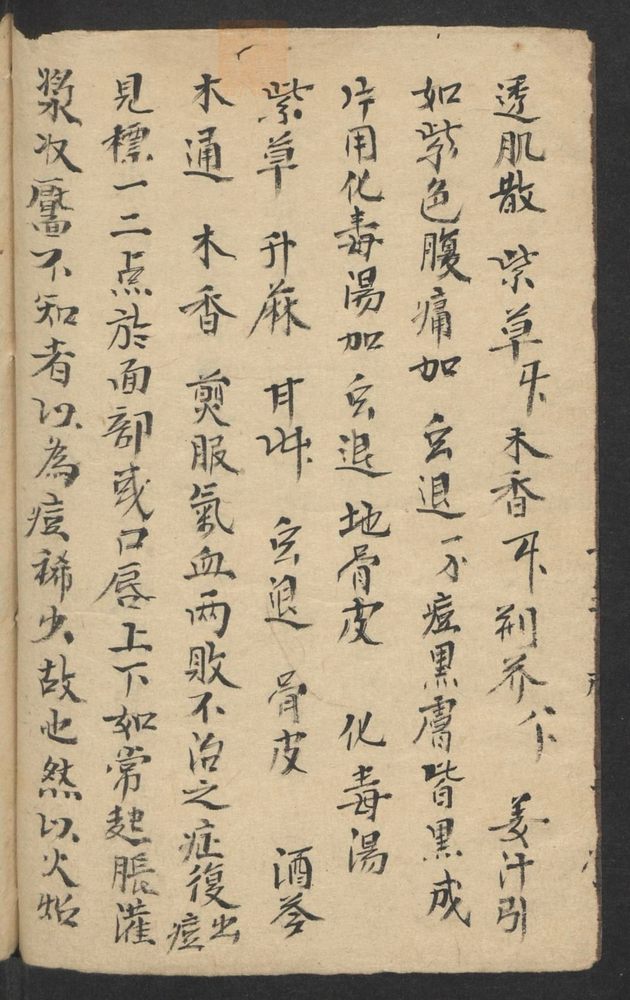 透肌散 紫草 木香 荆芥 姜汁引
如紫色腹痛加 退一 痘黒膚皆黒成
片用化毒湯加 退 地骨皮 化毒湯
紫草 升麻 甘艸 退 骨皮 酒芩
木通 木香 煎服氣血兩敗不治之症復出痘
見標一二点於面部或口唇上下如常起脹灌
漿收靨不知者以為痘稀少故也然以火